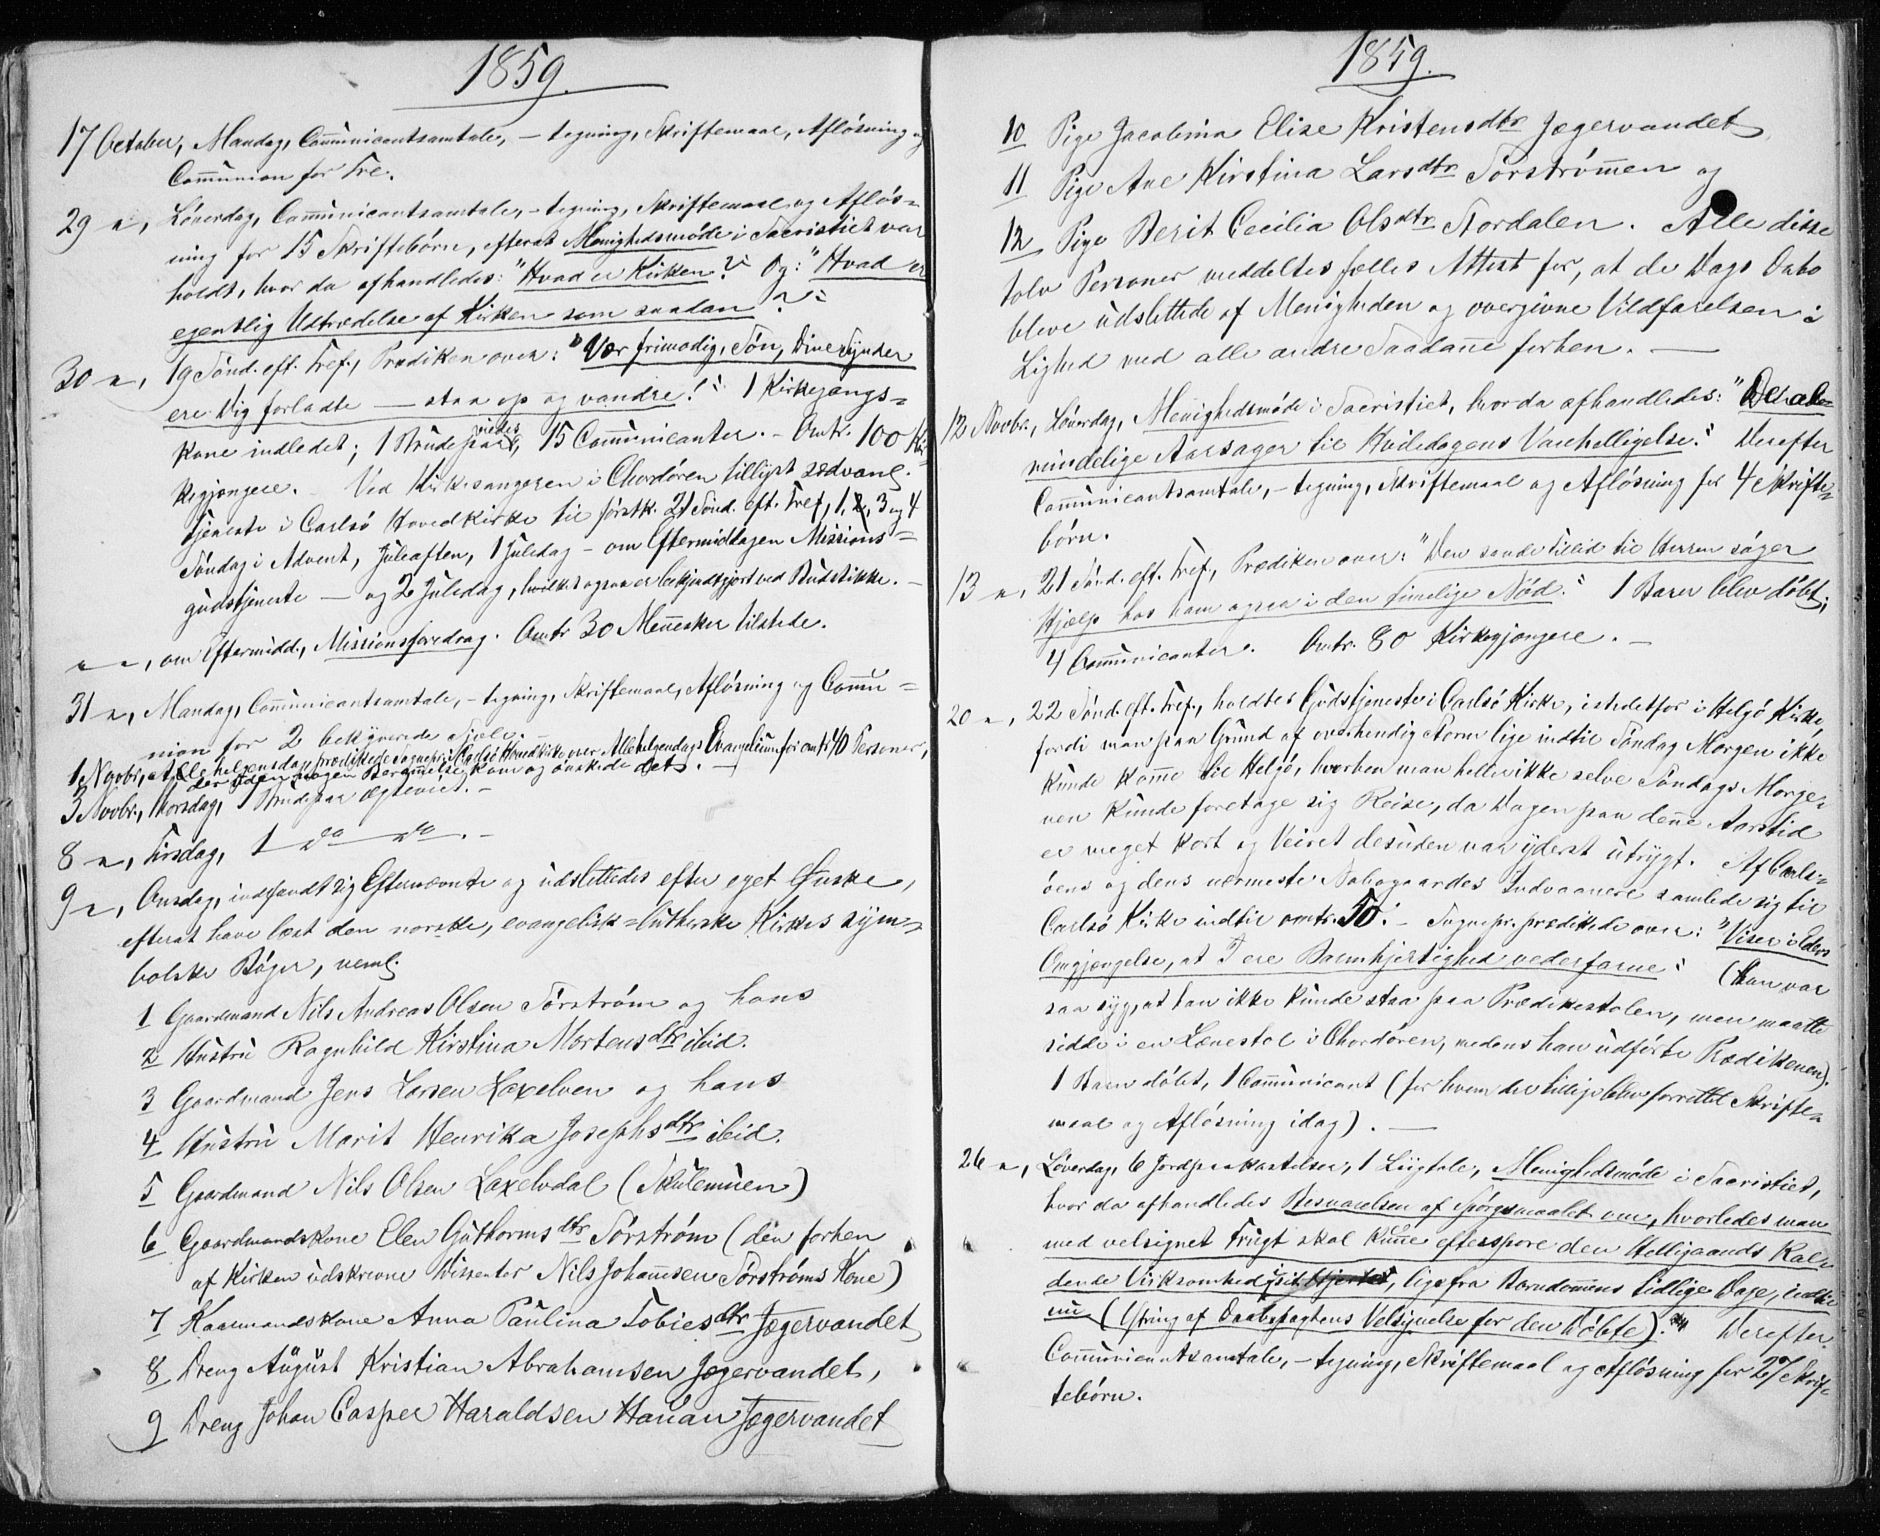 1859.
17 October, Mandag, Communicantsamtale, – tegning, Skriftemaal, Afløsning og
Communion for Tre.
29 –"–, Løverdag, Communicantsamtale, – tegning, Skriftemaal og Afløs=
ning for 15 Skriftebørn, efterat Menighedsmøde i Sacristiet var
holdt, hvor da afhandledes: "Hvad er Kirken?" Og: "Hvad er
egentlig Udtrædelse af Kirken som saadan?"
30 –"–, 19 Sønd. eft. Tref., Prædiken over: "Vær frimodig, Søn, Dine Synder
ere Dig forladte — staa op og vandre!" 1 Kirkegangs=
kone indledet; 1 Brudepar viedes, 15 Communicanter. – Omtr. 100 Kir=
kegjængere. – Ved Kirkesangeren i Chordøren tillyst sædvanl.
Tjeneste i Carlsø Hovedkirke til førstk. 21 Sønd. eft. Tref, 1, 2, 3 og 4
Søndag i Advent, Juleaften, 1 Juledag – om Eftermiddagen Missions=
gudstjeneste — og 2 Juledag, hvilket ogsaa er bekjendtgjort ved Budstikke. –
–"– –"–, om Eftermidd., Missionsforedrag. Omtr 30 Mennesker tilstede.
31 –"–, Mandag, Communicantsamtale, – tegning, Skriftemaal, Afløsning og Commu=
nion for 2 bekymrede Sjæle. –
1 Novbr., Allehelgensdag, prædikede Sognepr. i Carlsø Hovedkirke over Allehelgendags Evangelium for omtr 40 Personer,
der uden nogen Berammelse kom og ønskede det. —
3 Novbr., Torsdag, 1 Brudepar ægteviet. –
8 –"–, Tirsdag, 1 do do. –
9 –"–, Onsdag, indfandt sig Efternævnte og udslettedes efter eget Ønske,
efterat have læst den norske, evangelisk=lutherske Kirkes sym=
bolske Bøger, neml.
1 Gaardmand Nils Andreas Olsen Sørstrøm og hans
2 Hustru Ragnhild Kirstina Mortensdtr ibid.
3 Gaardmand Jens Larsen Laxelven og hans
4 Hustru Marit Henrika Josephsdtr ibid.
5 Gaardmand Nils Olsen Laxelvdal (Skulemuen)
6 Gaardmandskone Elen Guthormsdtr Sørstrøm (den forhen
af Kirken udskrevne Dissenter Nils Johannesen Sørstrøms Kone)
7 Kaarmandskone Anna Paulina Tobiesdtr Jægervandet
8 Dreng August Kristian Abrahamsen Jægervandet,
9 Dreng Johan Casper Haraldsen Hauan Jægervandet
1859.
10 Pige Jacobina Elise Kristensdtr Jægervandet,
11 Pige Ane Kirstina Larsdtr Sørstrømen og
12 Pige Berit Cecilia Olsdtr Stordalen. Alle disse
tolv Personer meddeltes fælles Attest for, at de Dags Dato
bleve udslettede af Menigheden og overgivne Vildfarelsen i
Lighed med alle andre Saadanne forhen. —
12 Novbr., Løverdag, Menighedsmøde i Sacristiet, hvor da afhandledes: "De al=
mindelige Aarsager til Hviledagens Vanhelligelse." Derefter
Communicantsamtale, – tegning, Skriftemaal og Afløsning for 4 Skrifte=
børn.
13 –"–, 21 Sønd. eft. Tref., Prædiken over: "Den sande Tillid til Herren søger
Hjælp hos ham ogsaa i den timelige Nød." 1 Barn blev døbt;
4 Communicanter. Omtr. 80 Kirkegjængere. –
20 –"–, 22 Sønd. eft. Tref., holdtes Gudstjeneste i Carlsø Kirke, istedetfor i Helgø Kirke,
fordi man paa Grund af overhendig Storm lige indtil Søndag Morgen ikke
kunde komme til Helgø, hvorhen man heller ikke selve Søndags Morge=
nen kunde foretage sig Reise, da Dagen paa denne Aarstid
er meget kort og Veiret desuden var yderst utrygt. Af Carls=
øens og dens nærmeste Nabogaardes Indvaanere samlede sig til
Carlsø Kirke indtil omtr. 50. – Sognepr. prædikede over: "Viser i Eders
Omgjængelse, at I ere Barmhjertighed vederfarne" (Han var
saa syg, at han ikke kunde staa paa Prædikestolen, men maatte
sidde i en Lænestol i Chordøren, medens han udførte Prædikenen).
1 Barn døbt, 1 Communicant (for hvem der tillige blev forrettet Skrifte=
maal og Afløsning idag). —
26 –"–, Løverdag, 6 Jordpaakastelser, 1 Liigtale, Menighedsmøde i Sacristiet,
hvor da afhandledes Besvarelsen af Spørgsmaalet om, hvorledes man
med velsignet Frugt skal kunne efterspore den Helligaands Kal=
dende Virksomhed i sit Hjerte, lige fra Barndommens tidlige Dage, indtil
nu (Ytring af Daabspagtens Velsignelse for den Døbte)." Derefter
Communicantsamtale, – tegning, Skriftemaal og Afløsning for 27 Skrif=
tebørn.